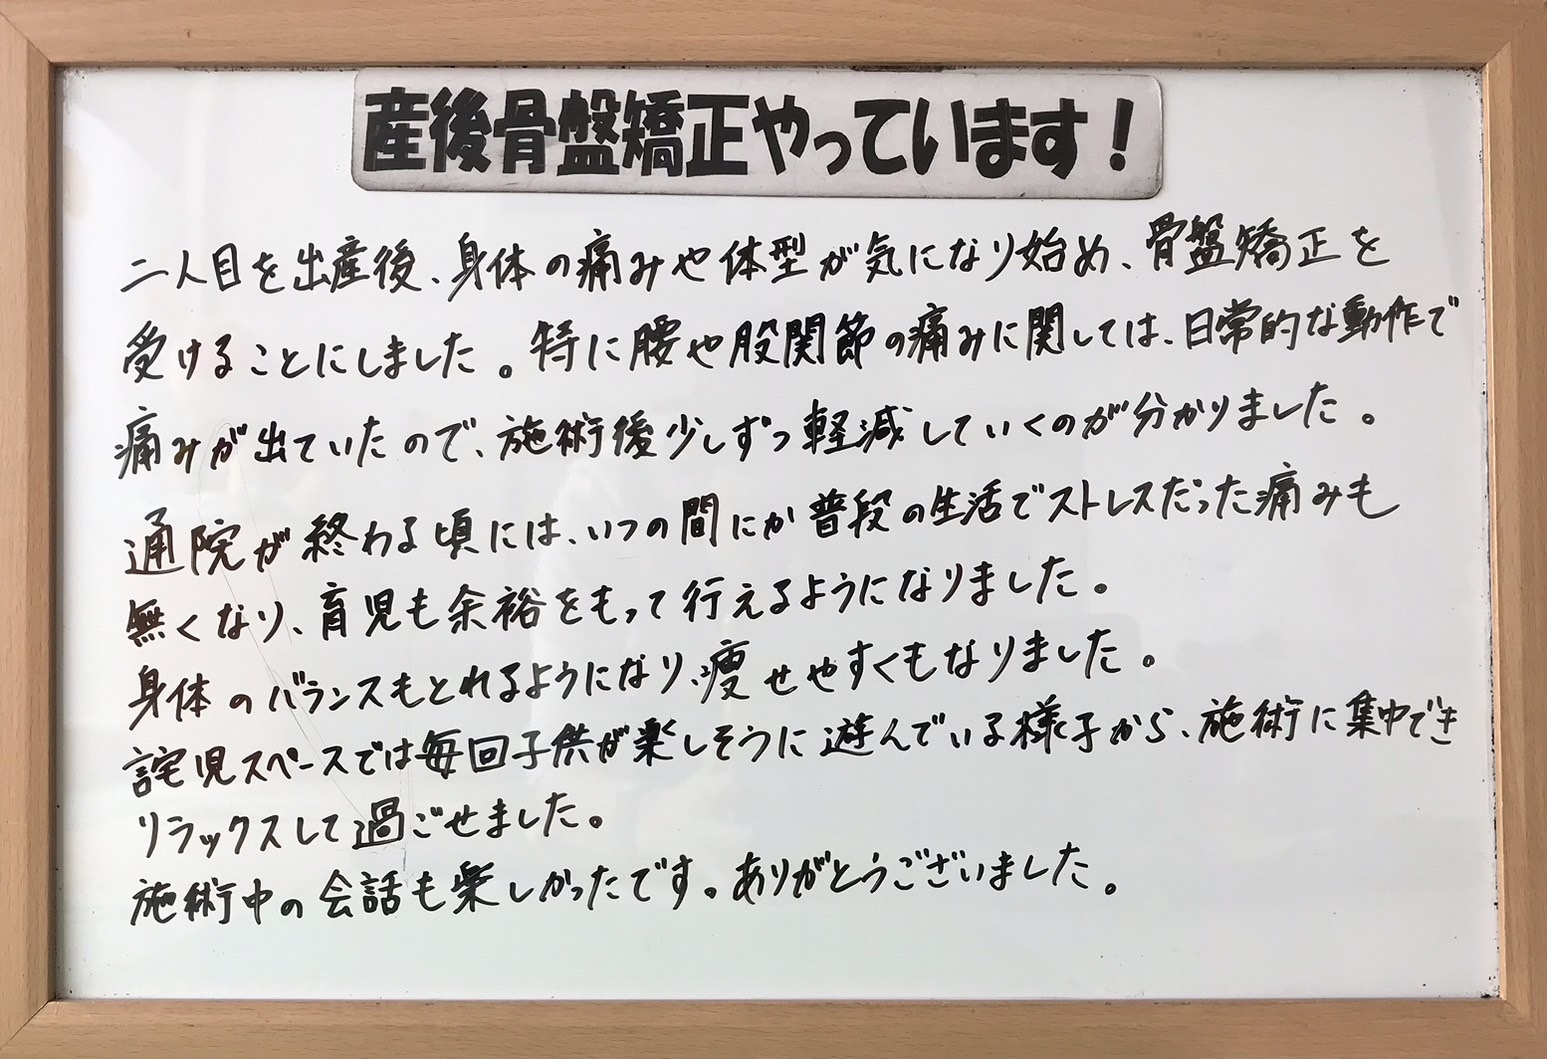 産後骨盤矯正やっています！
二人目を出産後、身体の痛みや体型が気になり始め、骨盤矯正を
受けることにしました。特に腰や股関節の痛みに関しては、日常的な動作で
痛みが出ていたので、施術後少しずつ軽減していくのが分かりました。
通院が終わる頃には、いつの間にか普段の生活でストレスだった痛みも
無くなり、育児も余裕をもって行えるようになりました。
身体のバランスもとれるようになり、痩せやすくもなりました。
託児スペースでは毎回子供が楽しそうに遊んでいる様子から、施術に集中でき
リラックスして過ごせました。
施術中の会話も楽しかったです。ありがとうございました。